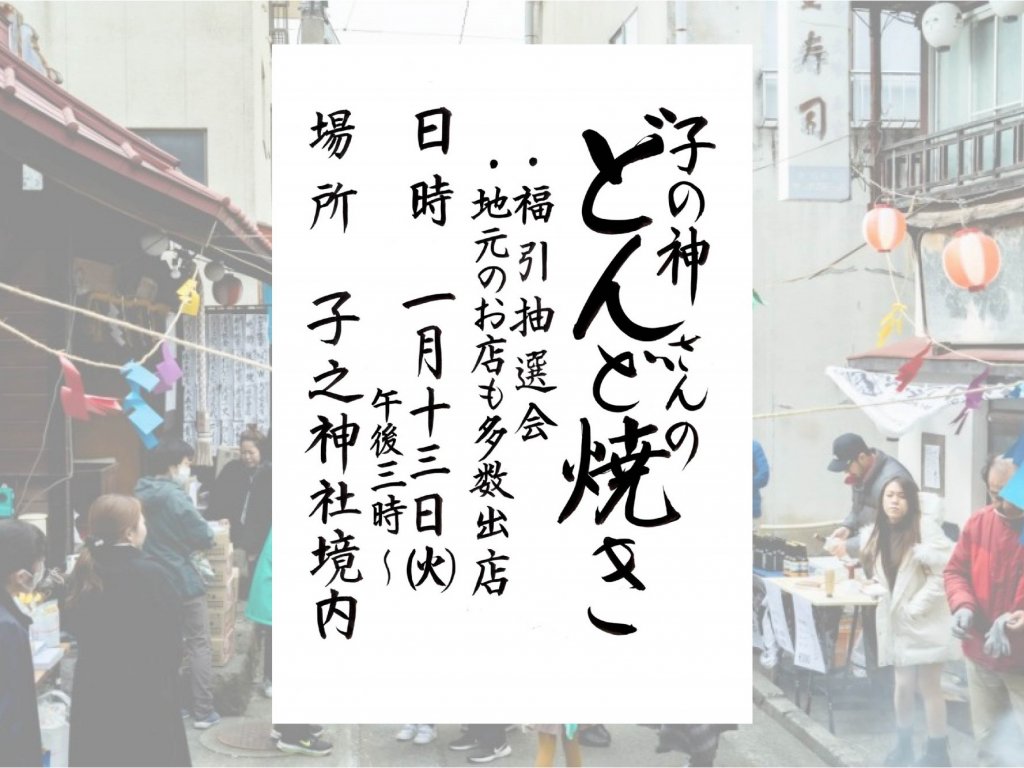 子の神さんの
どんど焼き
・福引抽選会
・地元のお店も多数出店
日時 一月十三日(火)
午後三時~
場所 子之神社境内
寿司